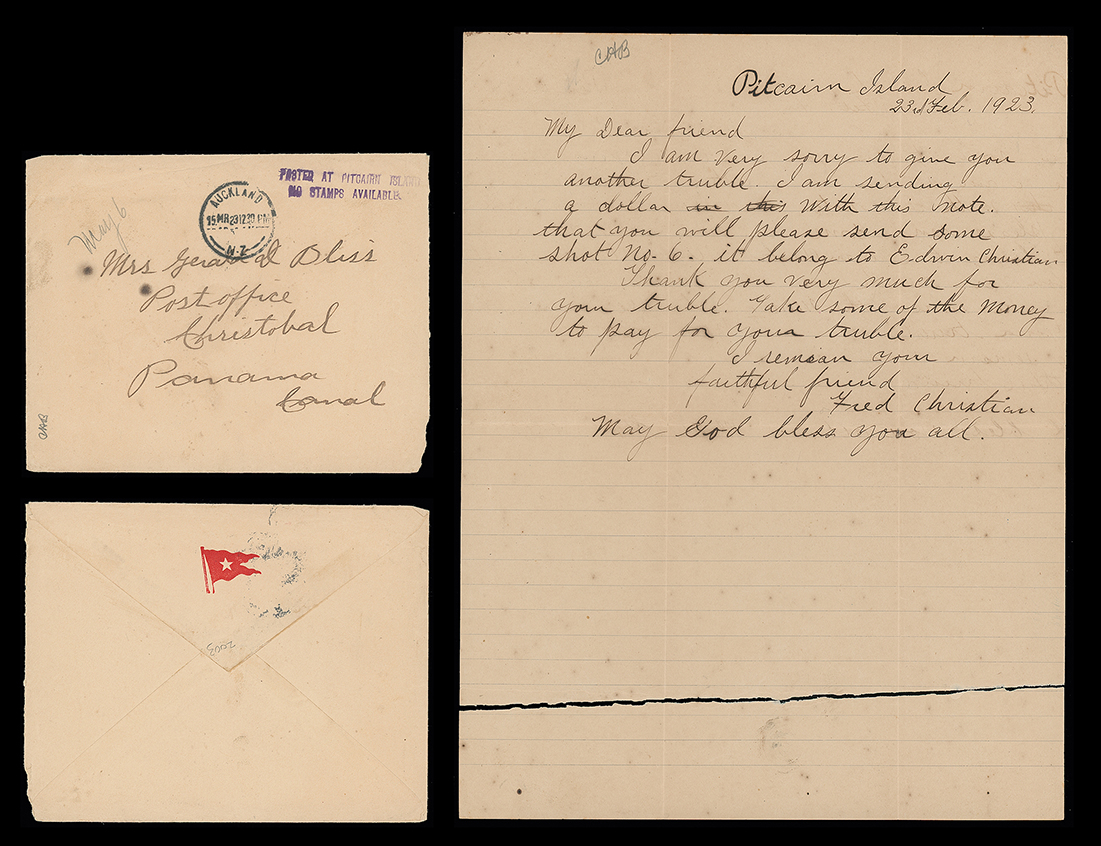 CAB
Pitcairn Island
23rd Feb. 1923.
My Dear friend
I am very sorry to give you
another truble. I am sending
a dollar in this With this note.
that you will please send some
shot No. 6. it belong to Edwin Christian
Thank you very much for
your truble. Take some of the Money
to pay for your truble.
I remain your
faithful friend
Fred Christian
May God bless you all.
POSTED AT PITCAIRN ISLAND
NO STAMPS AVAILABLE.
AUCKLAND
15 MR 23 12 30 PM
N·Z
May 6
Mrs Gerald Bliss
Post office
Christobal
Panama
Canal
CAB